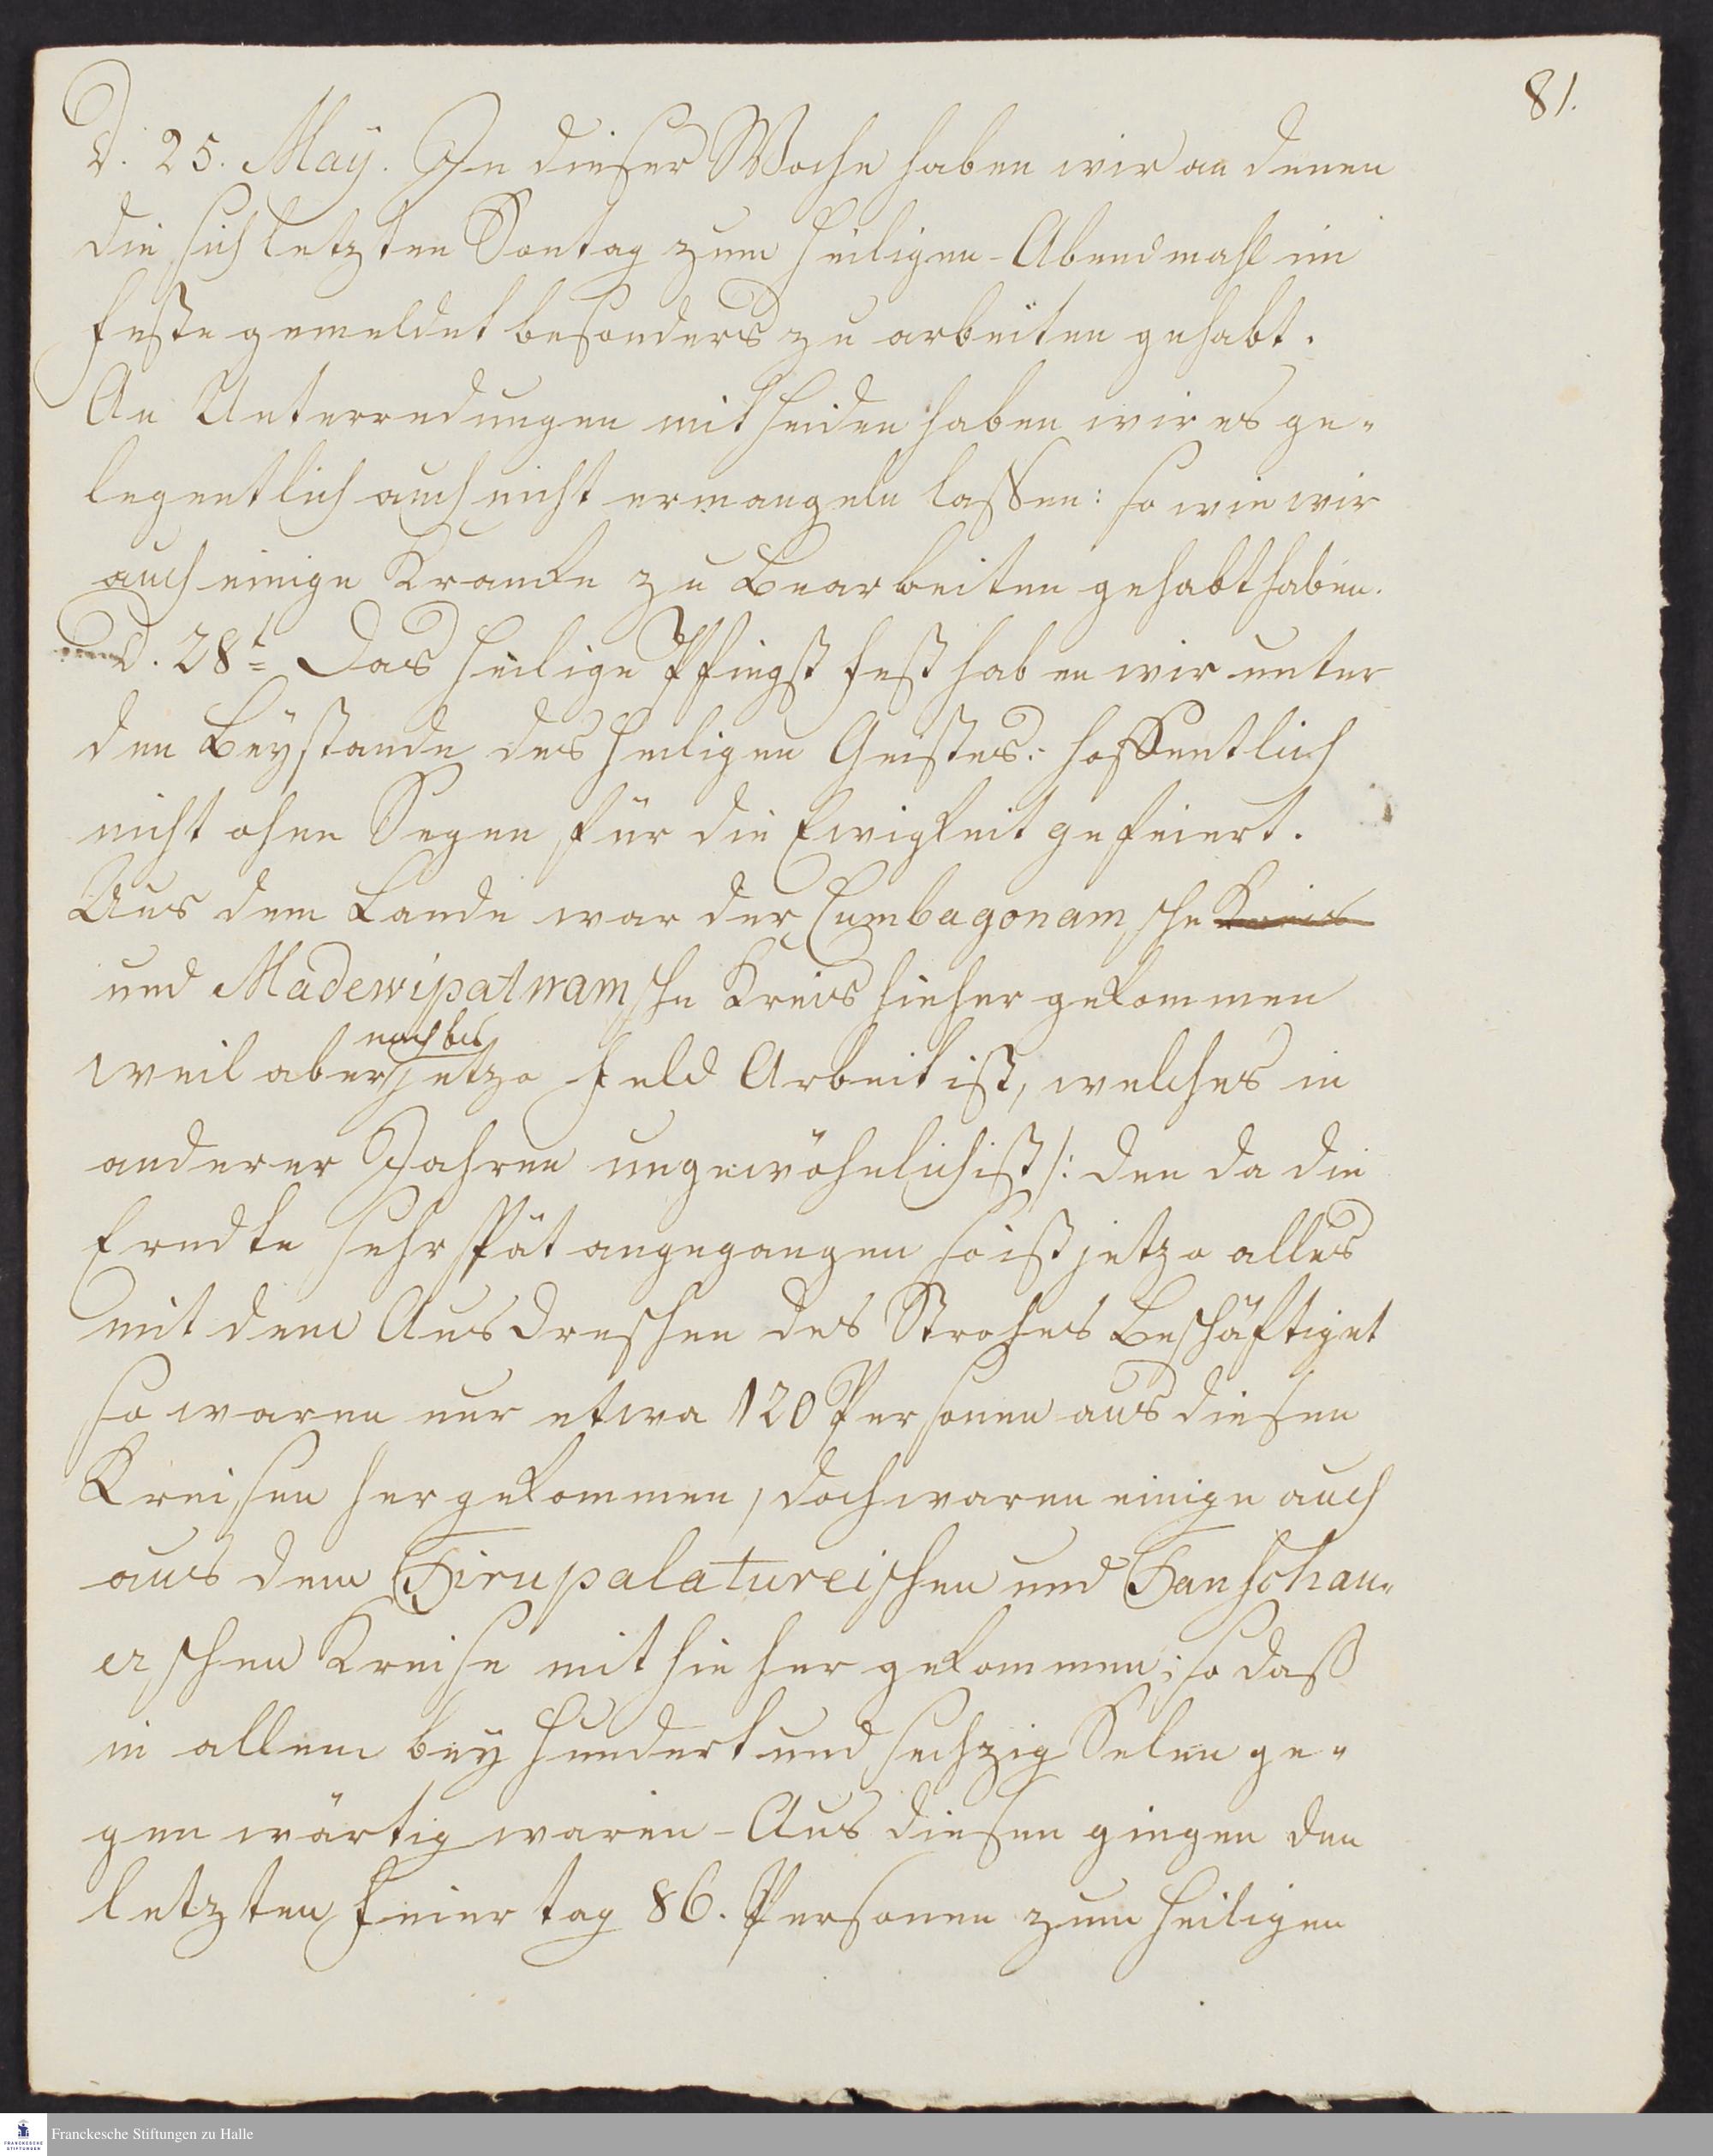 81.
D. 25. Maÿ. In dieser Woche haben wir an denen
die sich letzten Sontag zum heiligen Abendmahl im
Feste gemeldet besonders zu arbeiten gehabt.
An Unterredungen mit Heiden haben wir es ge-
legentlich auch nicht ermangeln lassen: so wie wir
auch einige Krancke zu Bearbeiten gehabt haben.
D. 28t Das heilige Pfingst Fest haben wir unter
den Beÿstande des heiligen Geistes: hoffentlich
nicht ohne Segen für die Ewigkeit gefeiert.
Aus dem Lande war der Cumbagonamsche Kreis
und Madewipatnamsche Kreis hieher gekommen
weil aber noch bis jetzo Feld Arbeit ist, welches in
anderer Jahren ungewöhnlich ist /: den da die
Erndte sehr spät angegangen so ist jetzo alles
mit dem Ausdreschen des Strohes Beschäftiget
so waren nur etwa 120 Personen aus diesen
Kreisen her gekommen, doch waren einige auch
aus dem Tirupalatureischen und Tanschau-
erschen Kreise mit hieher gekommen; so daß
in allem beÿ hundert und sechzig Selen ge-
genwärtig waren - Aus diesen gingen den
letzten Feiertag 86. Personen zum heiligen
Franckesche Stiftungen zu Halle